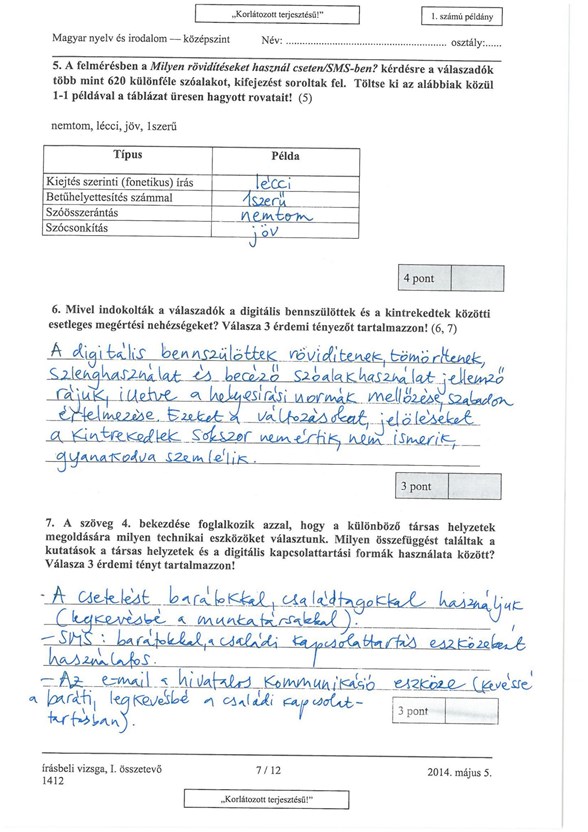 „Korlátozott terjesztésű!”
1. számú példány
Magyar nyelv és irodalom — középszint Név: ........................................................... osztály:......
5. A felmérésben a Milyen rövidítéseket használ cseten/SMS-ben? kérdésre a válaszadók
több mint 620 különféle szóalakot, kifejezést soroltak fel. Töltse ki az alábbiak közül
1-1 példával a táblázat üresen hagyott rovatait! (5)
nemtom, lécci, jöv, 1szerű
Típus Példa
Kiejtés szerinti (fonetikus) írás lécci
Betűhelyettesítés számmal 1szerű
Szóösszerántás nemtom
Szócsonkítás jöv
4 pont
6. Mivel indokolták a válaszadók a digitális bennszülöttek és a kintrekedtek közötti
esetleges megértési nehézségeket? Válasza 3 érdemi tényezőt tartalmazzon! (6, 7)
A digitális bennszülöttek rövidítenek, tömörítenek,
szlenghasználat és becéző szóalakhasználat jellemző
rájuk, illetve a helyesírási normák mellőzése, szabadon
értelmezése. Ezeket a változásokat, jelöléseket
a kintrekedtek sokszor nem értik, nem ismerik,
gyanakodva szemlélik.
3 pont
7. A szöveg 4. bekezdése foglalkozik azzal, hogy a különböző társas helyzetek
megoldására milyen technikai eszközöket választunk. Milyen összefüggést találtak a
kutatások a társas helyzetek és a digitális kapcsolattartási formák használata között?
Válasza 3 érdemi tényt tartalmazzon!
- A csetelést barátokkal, családtagokkal használjuk
(legkevésbé a munkatársakkal).
- SMS: barátokkal, a családi kapcsolattartás eszközeként
használatos.
- Az e-mail a hivatalos kommunikáció eszköze (kevéssé
a baráti, legkevésbé a családi kapcsolat-
tartásban).
3 pont
írásbeli vizsga, I. összetevő 7 / 12 2014. május 5.
1412
„Korlátozott terjesztésű!”